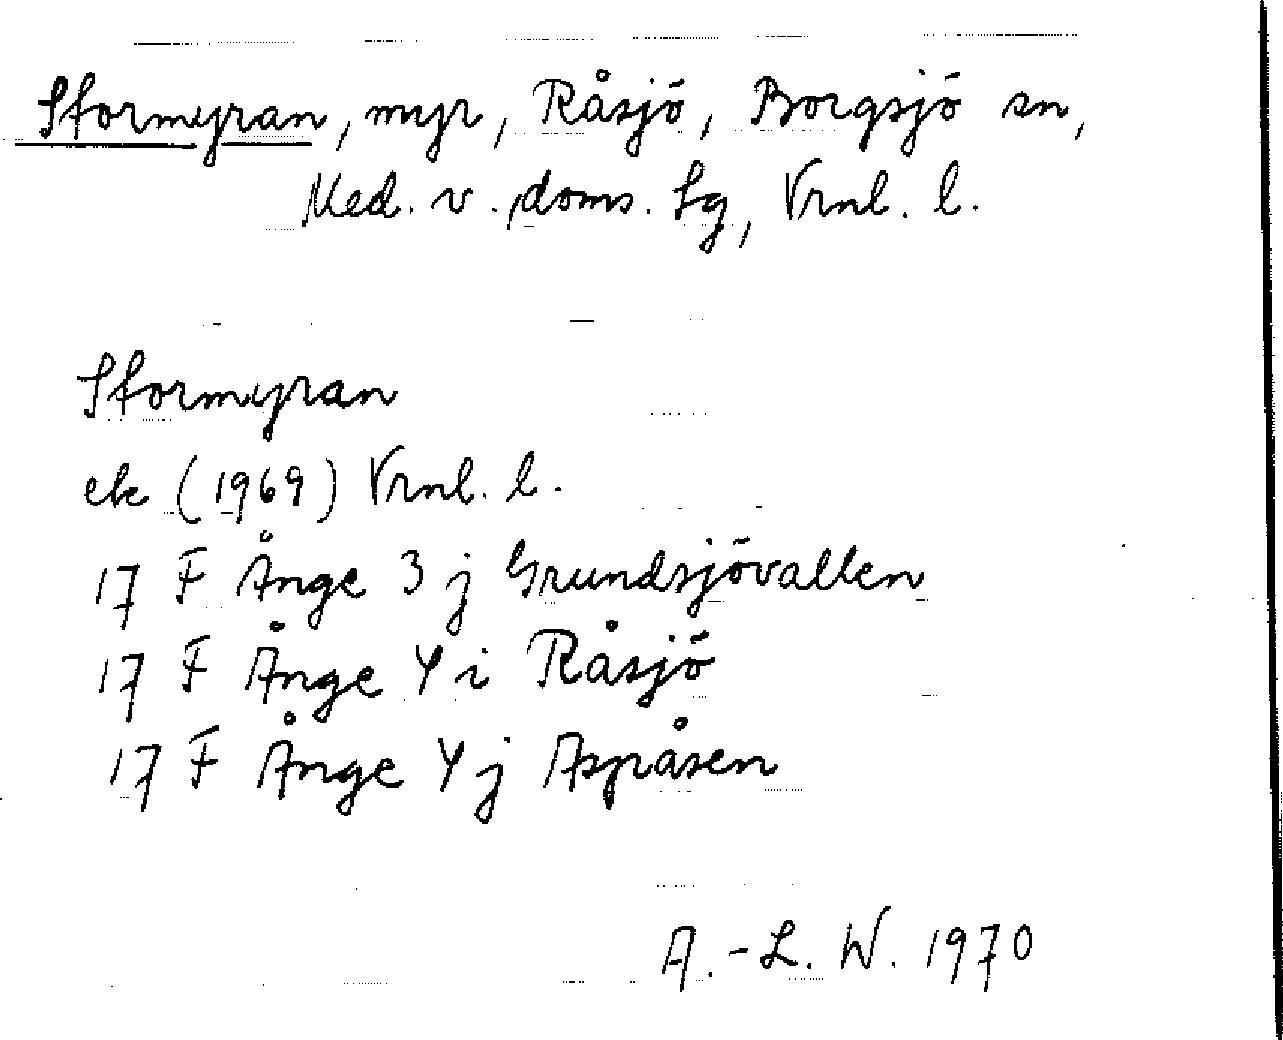 Stormyran, myr, Råsjö, Borgsjö sn,
Med. v. doms. tg, Vrnl. l.
Stormyran
ek (1969) Vrnl. l.
17 F Ånge 3 j Grundsjövallen
17 F Ånge 4 i Råsjö
17 F Ånge 4 j Aspåsen
A.-L. W. 1970